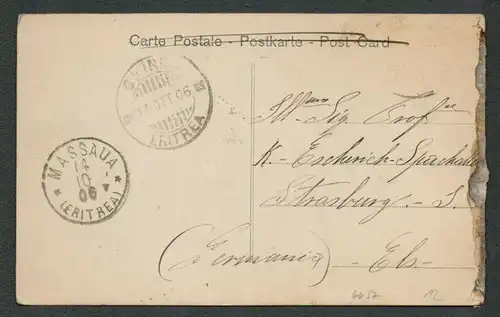 Carte Postale - Postkarte - Post Card
14 OTT 06
ERITREA
MASSAUA
14
10
06
(ERITREA)
Ill^mo Sig. Prof^re
K. Escherich
Strasburg - i. -
(Germania) Els -
6657 12